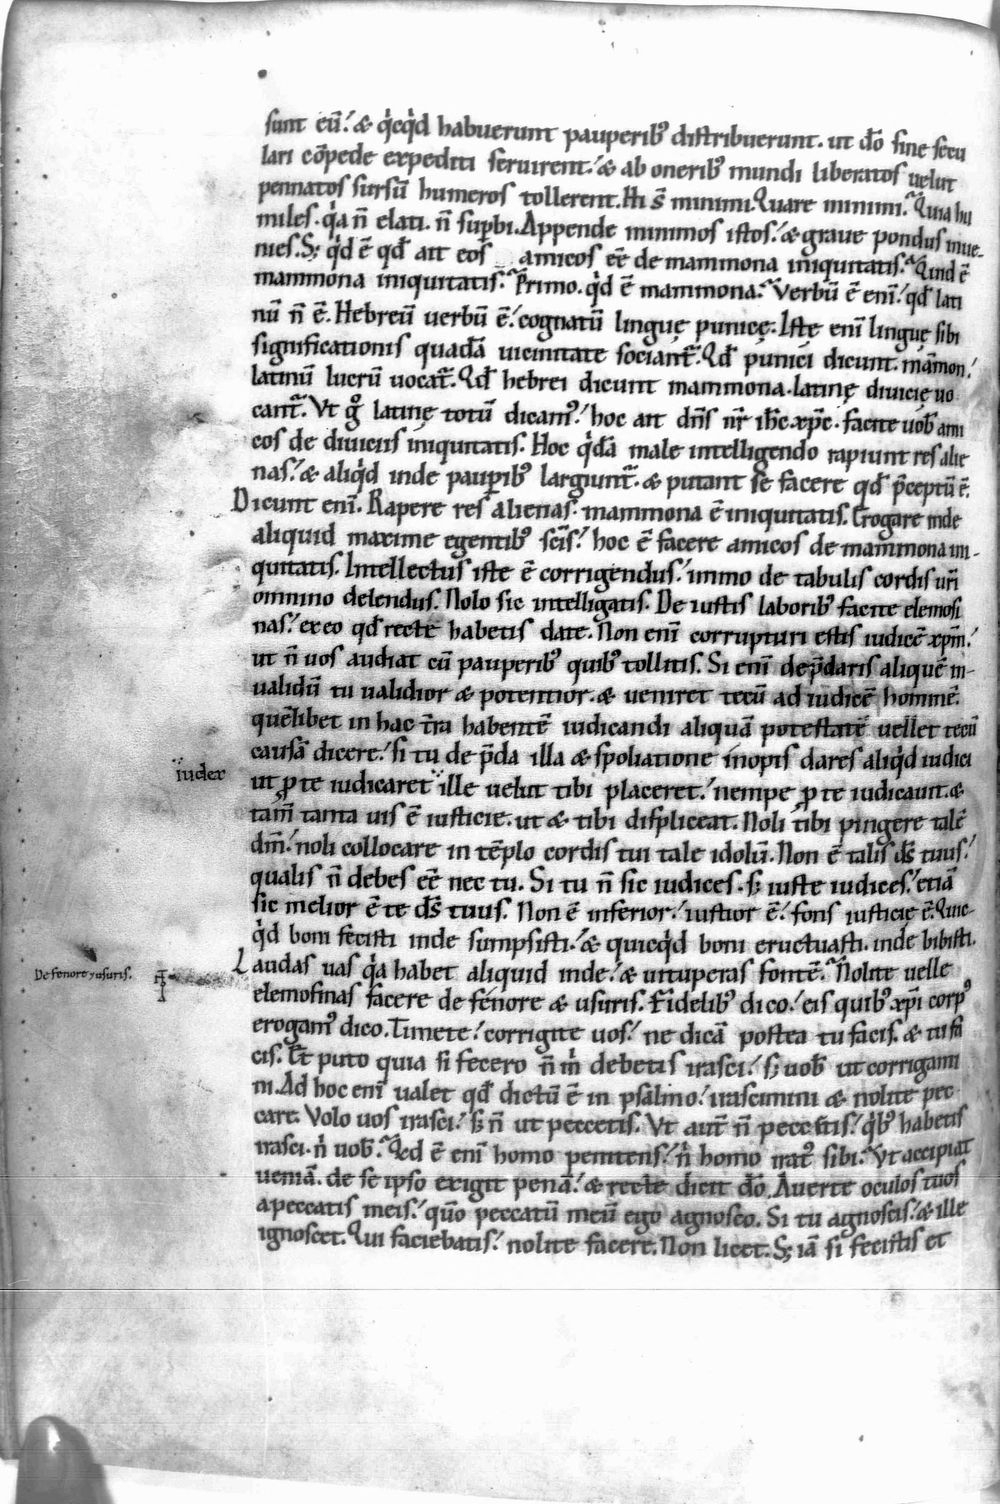 sunt eū. & qͥcqͥd habuerunt pauperibꝰ distribuerunt. ut dō sine secu
lari cōpede expediti seruirent. & ab oneribꝰ mundi liberatos uelut
pennatos sursū humeros tollerent. Hi s̄ minimi. Quare minimi. Quia hu
miles. qͥa n̄ elati. n̄ supbi. Appende minimos istos. & graue pondus inue-
nies. S; qͥd ē qd̄ ait eos amicos eē de mammona iniquitatis. Quid ē
mammona iniquitatis. Primo. qͥd ē mammona. Verbū ē enī. qd̄ lati
nū n̄ ē. Hebreū uerbū ē. cognatū linguę punicę. Iste enī linguę sibi
significationis quadā uicinitate sociant̄. Qd̄ punici dicunt. māmon.
latinū lucrū uocat̄. Qd̄ hebrei dicunt mammona. latinę diuicię uo
cant̄. Vt gͦ latinę totū dicamꝰ. hoc ait dn̄s nr̄ ih̄c xp̄c. facite uob̄ ami
cos de diuiciis iniquitatis. Hoc qͥdā male intelligendo rapiunt res alie
nas. & aliqͥd inde pauꝑibꝰ largiunt̄. & putant se facere qd̄ p̄ceptū ē.
Dicunt enī. Rapere res alienas. mammona ē iniquitatis. Erogare inde
aliquid maxime egentibꝰ scīs. hoc ē facere amicos de mammona ini-
quitatis. Intellectus iste ē corrigendus. immo de tabulis cordis ur̄i
omnino delendus. Nolo sic intelligatis. De iustis laboribꝰ facite elemosi
nas. ex eo qd̄ recte habetis date. Non enī corrupturi estis iudicē xp̄m.
ut n̄ uos audiat cū pauperibꝰ quibꝰ tollitis. Si enī de p̄daris aliquē in-
ualidū tu ualidior & potentior. & ueniret tecū ad iudicē hominē.
quēlibet in hac t̄ra habentē iudicandi aliquā potestatē uellet tecū
causā dicere. si tu de p̄da illa & spoliatione inopis dares aliqͥd iudici
iudex
ut ꝓ te iudicaret ille uelut tibi placeret. nempe ꝓ te iudicauit. &
tam̄ tanta uis ē iusticie. ut & tibi displiceat. Noli tibi pingere talē
dm̄. noli collocare in tēplo cordis tui tale idolū. Non ē talis d̄s tuus.
qualis n̄ debes eē nec tu. Si tu n̄ sic iudices. s; iuste iudices. etiā
sic melior ē te d̄s tuus. Non ē inferior. iustior ē. fons iusticię ē. Quic-
qͥd boni fecisti inde sumpsisti. & quicqͥd boni eructuasti. inde bibisti.
Laudas uas qͥa habet aliquid inde. & uituperas fontē. Nolite uelle
De fenore ⁊ usuris.
elemosinas facere de fenore & usuris. Fidelibꝰ dico. eis quibꝰ xp̄i corpꝰ
erogamꝰ dico. Timete. corrigite uos. ne dicā postea tu facis. & tu fa
cis. Et puto quia si fecero n̄ m̄ debetis irasci. s; uob̄ ut corrigami
ni. Ad hoc enī ualet qd̄ dictū ē in psalmo. irascimini & nolite pec
care. Volo uos irasci. s; n̄ ut peccetis. Vt aut̄ n̄ peccetis. qͥbꝰ habetis
irasci. n̄ uob̄. Qd ē enī homo penitens. n̄ homo iratꝰ sibi. Vt accipiat
ueniā. de se ipso exigit penā. & recte dicit dō. Auerte oculos tuos
a peccatis meis. quō peccatū meū ego agnosco. Si tu agnoscis. & ille
ignoscet. Qui faciebatis. nolite facere. Non licet. S; iā si fecistis et